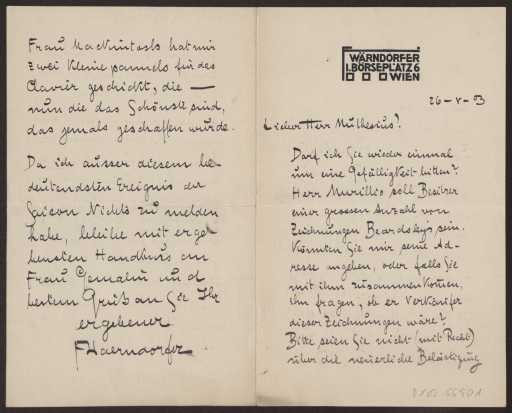 WÄRNDORFER
I. BÖRSEPLATZ 6
WIEN
26-V-03
Lieber Herr Muthesius!
Darf ich Sie wieder einmal
um eine Gefälligkeit bitten?
Herr Murillio soll Besitzer
einer grossen Anzahl von
Zeichnungen Beardsleys sein.
Könnten Sie mir seine Ad-
resse angeben, oder falls Sie
mit ihm zusammenkomen,
ihn fragen, ob er Verkäufer
dieser Zeichnungen wäre?
Bitte seien Sie nicht (mit Recht)
über die neuerliche Belästigung
Frau Mackintosh hat mir
zwei kleine pannels für das
Clavier geschickt, die —
nun die das Schönste sind,
das jemals geschaffen wurde.
Da ich ausser diesem be
deutendsten Ereignis der
Saison Nichts zu melden
habe, bleibe mit erge
bensten Handkuss an
Frau Gemahlin und
bestem Gruß an Sie Ihr
ergebener
FWaerndorfer